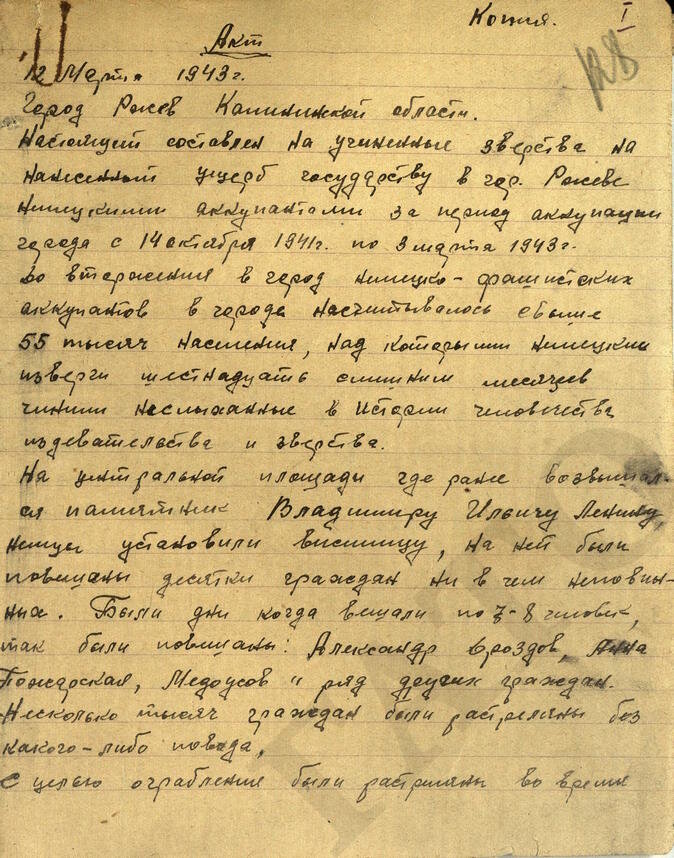 Копия. I
Акт
128
12 Марта 1943 г.
Город Ржев Калининской области.
Настоящий составлен на учиненные зверства на
нанесенный ущерб государству в гор. Ржеве
немецкими аккупантами за период аккупации
города с 14 октября 1941 г. по 3 марта 1943 г.
До вторжения в город немецко-фашистских
аккупантов в городе насчитывалось свыше
55 тысяч населения, над которыми немецкии
изверги шестнадцать слишним месяцев
чинили неслыханные в Истории человечества
издевательства и зверства.
На центральной площади где ранее возвышал-
ся памятник Владимиру Ильичу Ленину,
немцы установили виселицу, на ней были
повешаны десятки граждан ни в чем неповин-
них. Были дни когда вешали по 7-8 человек,
так были повешаны: Александр Дроздов, Анна
Пожарская, Медоусов и ряд других граждан.
Несколько тысяч граждан были растреляны без
какого-либо повода,
С целью ограбления были растреляны во время